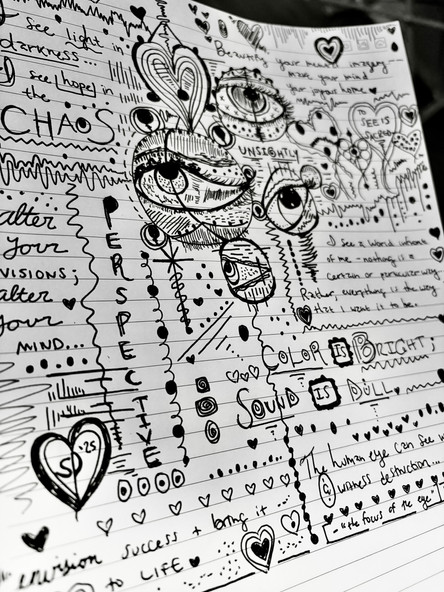 see light in
darkness...
I see [hope] in
the
CHAOS
alter
your
VISIONS;
alter
your
MIND...
PERSPECTIVE
Beautify your
your mind
UNSIGHTLY
TO
SEE IS
I see a world
of me - nothing is a
certain or particular way.
Rather, everything is the way
that I want it to be.
COLOR IS BRIGHT;
SOUND IS DULL.
The human eye can see
witness destruction...
- is the focus of the eye
envision success + bring it
to LIFE